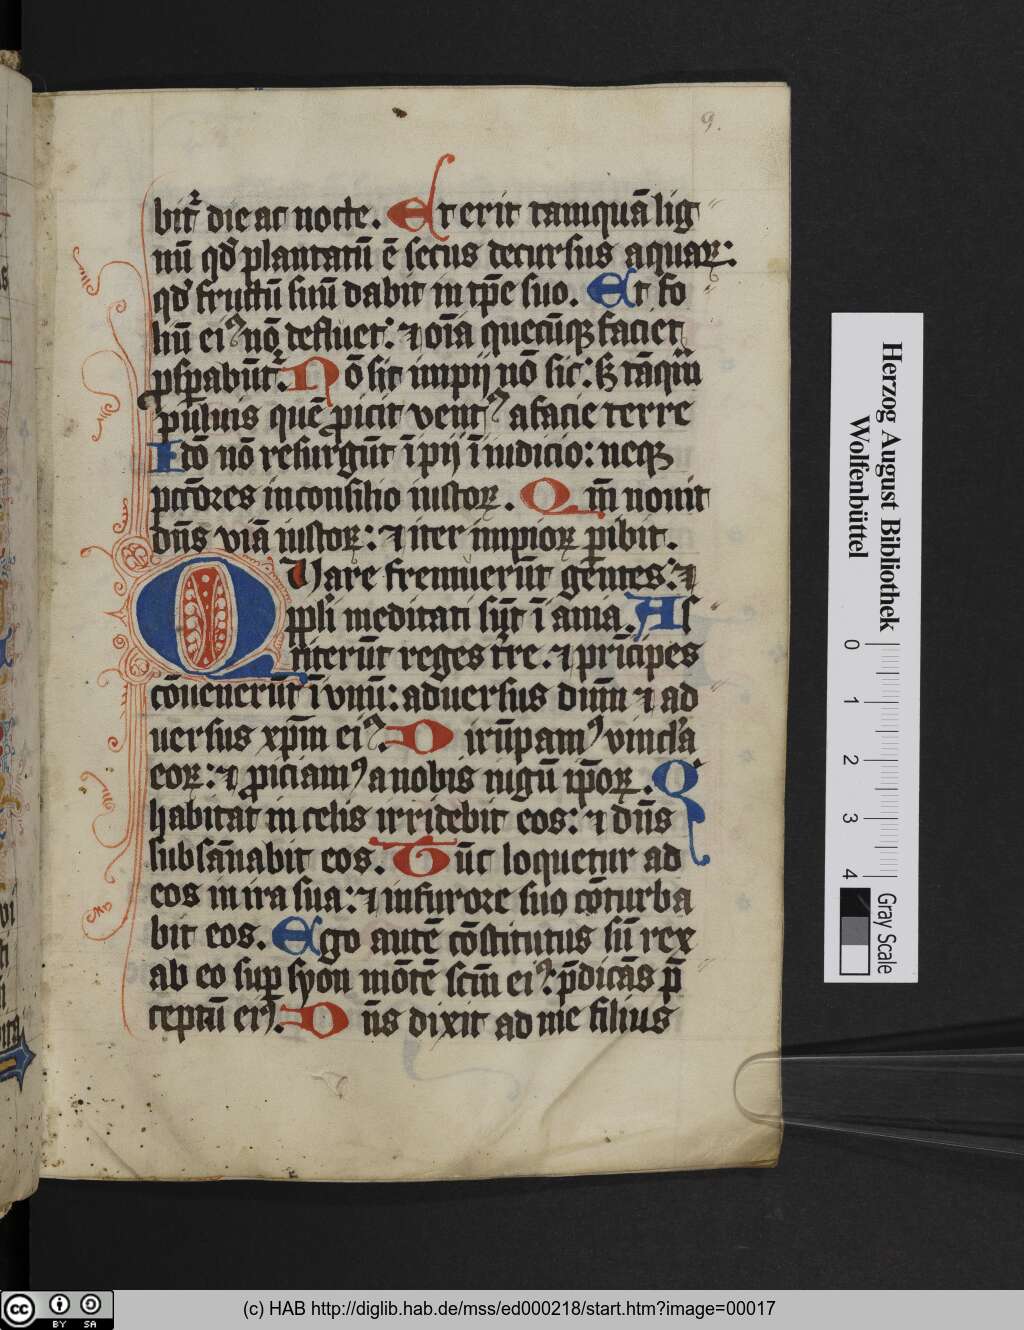 9.
bit᷑ die ac nocte. Et erit tamquā lig
nū qd̕ plantatū ē secus decursus aquaꝝ:
qd̕ fructū suū dabit in tp̄e suo. Et fo
liū eiꝰ nō defluet: ⁊ oīa quecūqꝫ faciet
ꝓsꝑabūt᷑. Nō sic impij nō sic: sꝫ tāqm̄
puluis quē ꝓicit ventꝰ a facie terre
Idō nō resurgūt īpij ī iudicio: neqꝫ
pctōres in consilio iustoꝝ. Qm̄ nouit
dn̄s viā iustoꝝ: ⁊ iter impioꝝ ꝑibit.
QVare fremuerūt gentes: ⁊
ppl̄i meditati sūt ī ania. As
titerūt reges tr̄e. ⁊ prīcipes
cōuenerūt ī vnū: aduersus dnm̄ ⁊ ad
uersus xp̄m eiꝰ. Dirūpamꝰ vincl̕a
eoꝝ: ⁊ ꝓiciamꝰ a nobis iugū ip̄oꝝ. Qi
habitat in celis irridebit eos: ⁊ dn̄s
subsānabit eos. Tūc loquetur ad
eos in ira sua: ⁊ in furore suo cōturba
bit eos. Ego autē cōstitutus sū rex
ab eo suꝑ syon mōtē scm̄ eiꝰ: p̄dicās p̄
ceptū eiꝰ. Dn̄s dixit ad me filius
Herzog August Bibliothek
Wolfenbüttel
0 1 2 3 4
Gray Scale
cc BY SA
(c) HAB http://diglib.hab.de/mss/ed000218/start.htm?image=00017